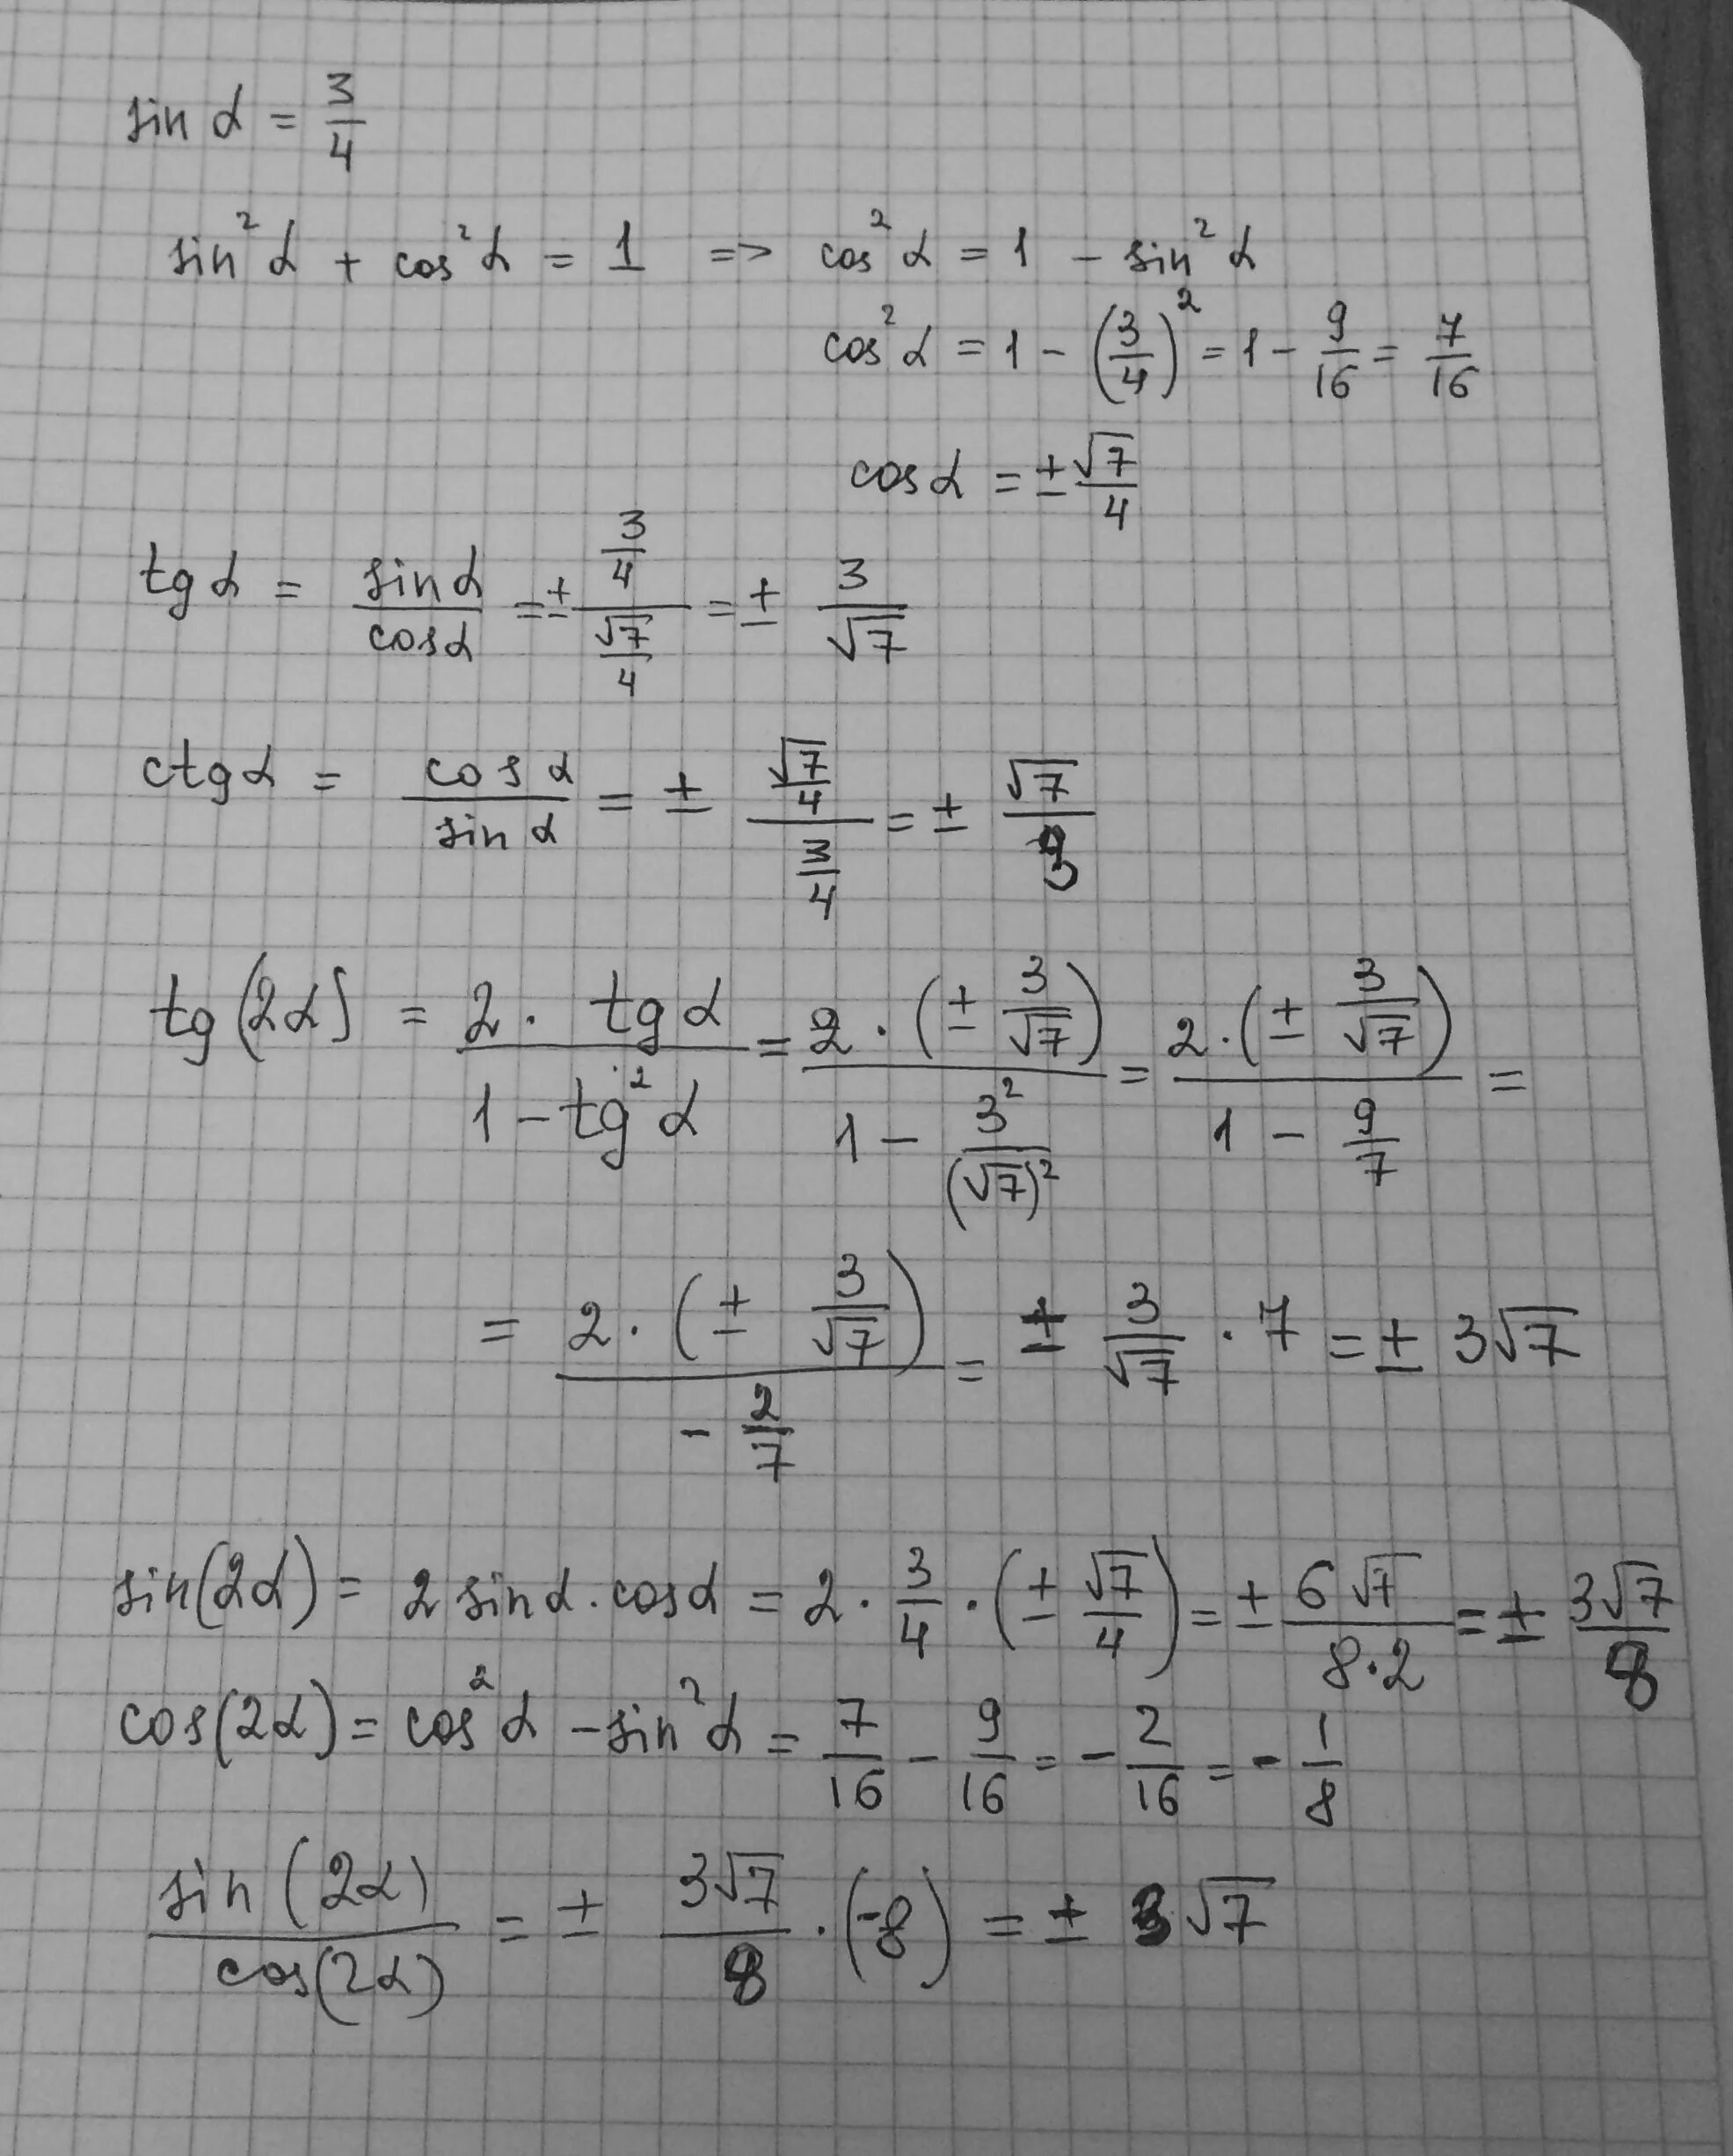 sin α = 3/4
sin² α + cos² α = 1 => cos² α = 1 - sin² α
cos² α = 1 - (3/4)² = 1 - 9/16 = 7/16
cos α = ± √7/4
tg α = sin α/cos α = ± (3/4)/(√7/4) = ± 3/√7
ctg α = cos α/sin α = ± (√7/4)/(3/4) = ± √7/3
tg(2α) = (2 · tg α)/(1 - tg² α) = (2 · (± 3/√7))/(1 - 3²/(√7)²) = (2 · (± 3/√7))/(1 - 9/7) =
= (2 · (± 3/√7))/(- 2/7) = ± 3/√7 · 7 = ± 3√7
sin(2α) = 2 sin α · cos α = 2 · 3/4 · (± √7/4) = ± 6√7/(8·2) = ± 3√7/8
cos(2α) = cos² α - sin² α = 7/16 - 9/16 = - 2/16 = - 1/8
sin(2α)/cos(2α) = ± 3√7/8 · (-8) = ± 3√7